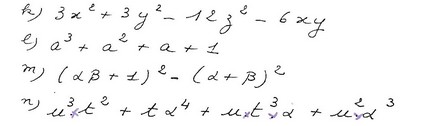 k) 3x² + 3y² - 12z² - 6xy
l) a³ + a² + a + 1
m) (αβ + 1)² - (α + β)²
n) u³t² + tα⁴ + ut³α + u²α³